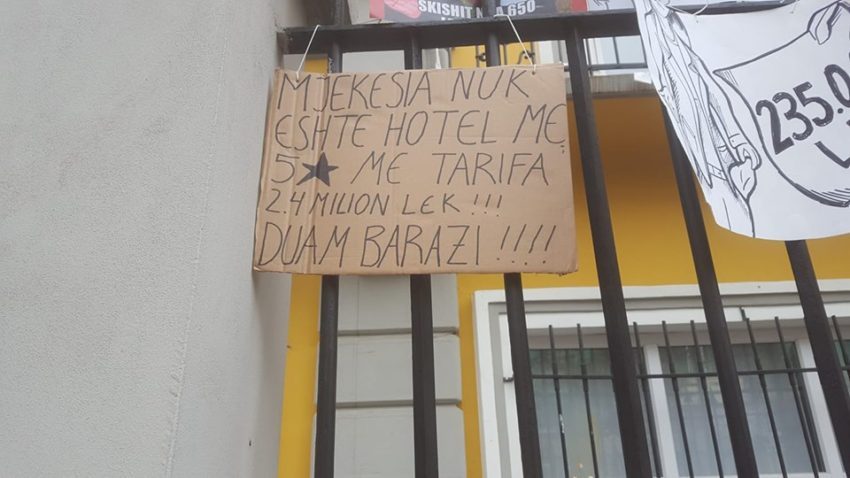 SKISHIT 650
MJEKESIA NUK
ESHTE HOTEL ME
5★ ME TARIFA
2.4 MILION LEK!!!
DUAM BARAZI!!!!
235.0